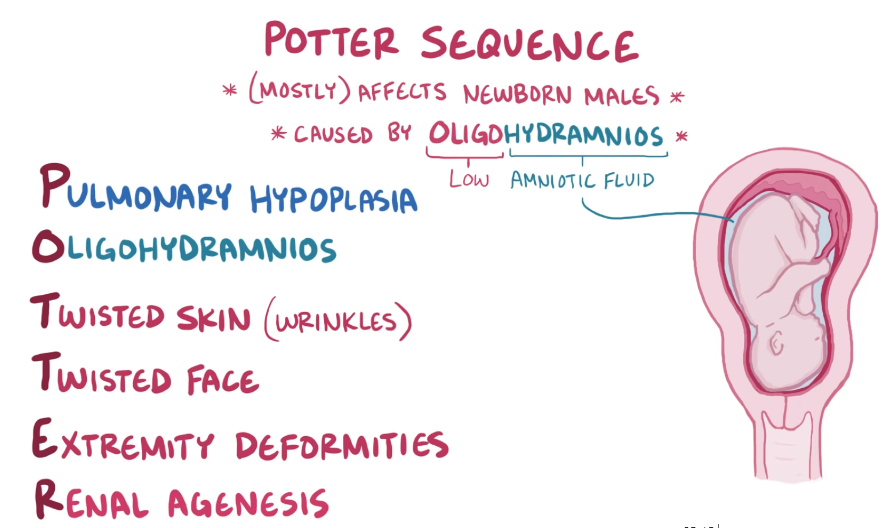 POTTER SEQUENCE
* (MOSTLY) AFFECTS NEWBORN MALES *
* CAUSED BY OLIGOHYDRAMNIOS *
LOW AMNIOTIC FLUID
PULMONARY HYPOPLASIA
OLIGOHYDRAMNIOS
TWISTED SKIN (WRINKLES)
TWISTED FACE
EXTREMITY DEFORMITIES
RENAL AGENESIS